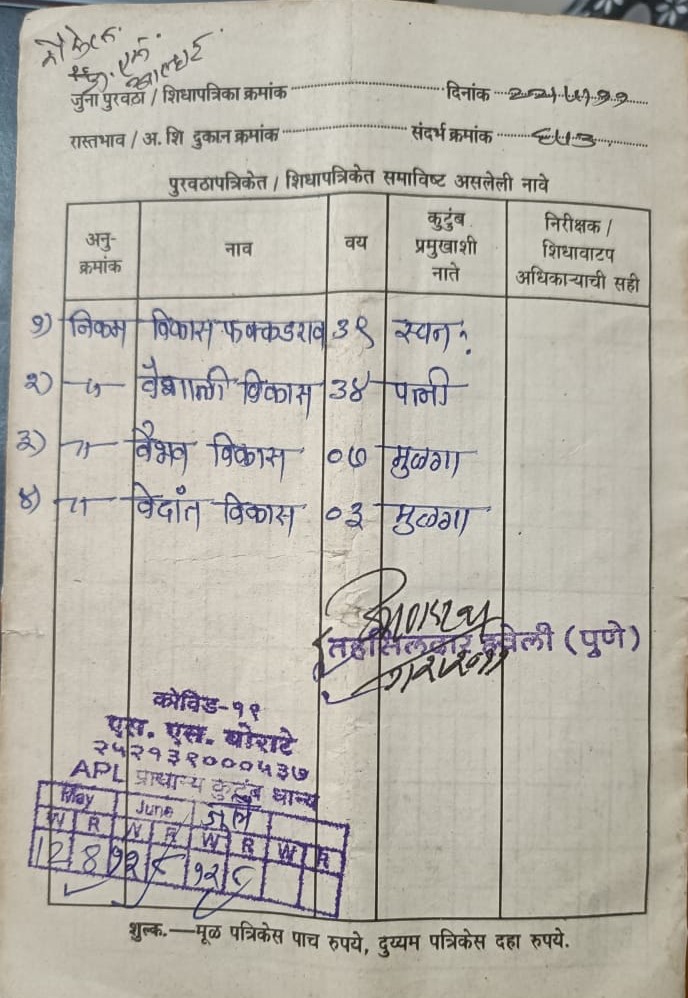 जुना पुरवठा / शिधापत्रिका क्रमांक दिनांक
रास्तभाव / अ. शि दुकान क्रमांक संदर्भ क्रमांक ६५३
पुरवठापत्रिकेत / शिधापत्रिकेत समाविष्ट असलेली नावे
अनु-क्रमांक नाव वय कुटुंब प्रमुखाशी नाते निरीक्षक / शिधावाटप अधिकाऱ्याची सही
१) निकम विकास फक्कडराव ३९
२) -"- वैशाली विकास ३४ पत्नी
३) -"- वैभव विकास ०७ मुळगा
४) -"- वेदांत विकास ०३ मुळगा
तहसिलदार हवेली (पुणे)
कोविड-१९
एस. एस. थोराटे
२५२१३९०००५३७
APL प्राधान्य कुटुंब धान्य
May June जुलै
W R W R W R W R
12 8 १२ ८ १२ ८
शुल्क.—मूळ पत्रिकेस पाच रुपये, दुय्यम पत्रिकेस दहा रुपये.